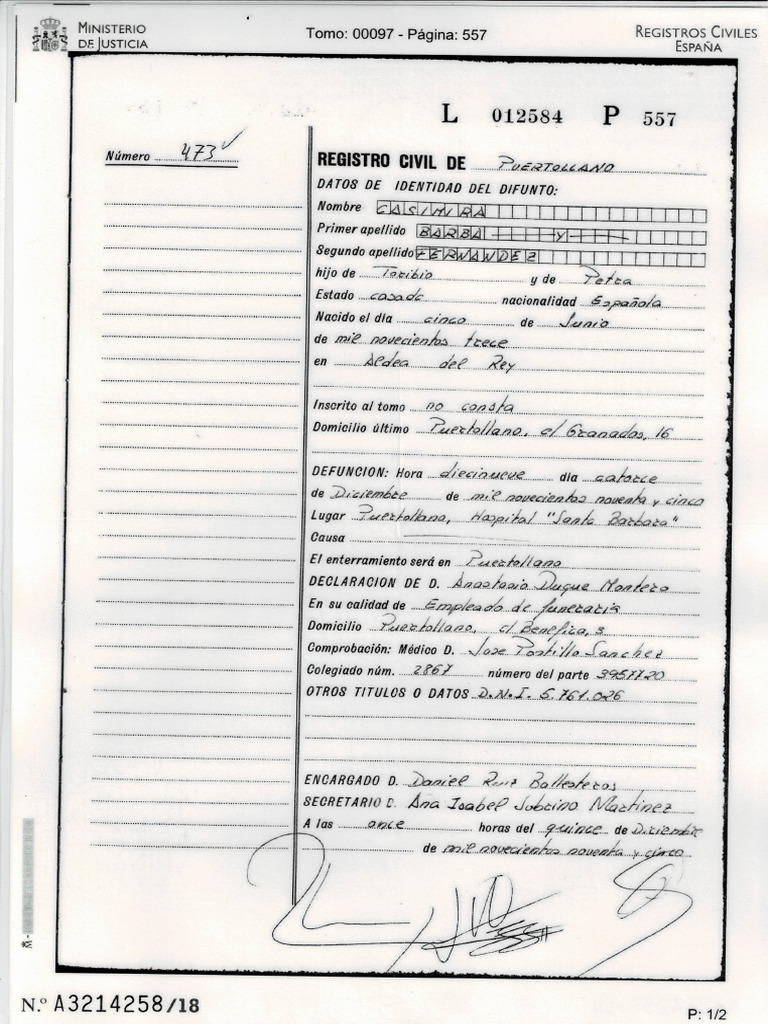 MINISTERIO
DE JUSTICIA
Tomo: 00097 - Página: 557
REGISTROS CIVILES
ESPAÑA
L 012584 P 557
Número 473
REGISTRO CIVIL DE PUERTOLLANO
DATOS DE IDENTIDAD DEL DIFUNTO:
Nombre CASIMIRA
Primer apellido BARBA y
Segundo apellido FERNANDEZ
hijo de Toribio y de Petra
Estado casada nacionalidad Española
Nacido el día cinco de Junio
de mil novecientos trece
en Aldea del Rey
Inscrito al tomo no consta
Domicilio último Puertollano, c/ Granados, 16
DEFUNCION: Hora diecinueve día catorce
de Diciembre de mil novecientos noventa y cinco
Lugar Puertollano, Hospital "Santa Barbara"
Causa
El enterramiento será en Puertollano
DECLARACION DE D. Anastasio Duque Montero
En su calidad de Empleado de funeraria
Domicilio Puertollano, c/ Benefica, 3
Comprobación: Médico D. Jose Portillo Sanchez
Colegiado núm. 2867 número del parte 3957720
OTROS TITULOS O DATOS D.N.I. 5.761.026
ENCARGADO D. Daniel Ruiz Ballesteros
SECRETARIO D. Ana Isabel Sobrino Martinez
A las once horas del quince de Diciembre
de mil novecientos noventa y cinco
N.º A3214258/18
P: 1/2